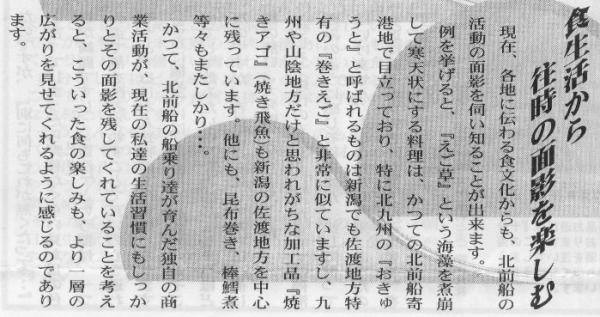 食生活から
往時の面影を楽しむ
現在、各地に伝わる食文化からも、北前船の
活動の面影を伺い知ることが出来ます。
例を挙げると、『えご草』という海藻を煮崩
して寒天状にする料理は、かつての北前船寄
港地で目立っており、特に北九州の『おきゅ
うと』と呼ばれるものは新潟でも佐渡地方特
有の『巻きえご』と非常に似ていますし、九
州や山陰地方だけと思われがちな加工品『焼
きアゴ』(焼き飛魚)も新潟の佐渡地方を中心
に残っています。他にも、昆布巻き、棒鱈煮
等々もまたしかり・・・。
かつて、北前船の船乗り達が育んだ独自の商
業活動が、現在の私達の生活習慣にもしっか
りとその面影を残してくれていることを考え
ると、こういった食の楽しみも、より一層の
広がりを見せてくれるように感じるのであり
ます。